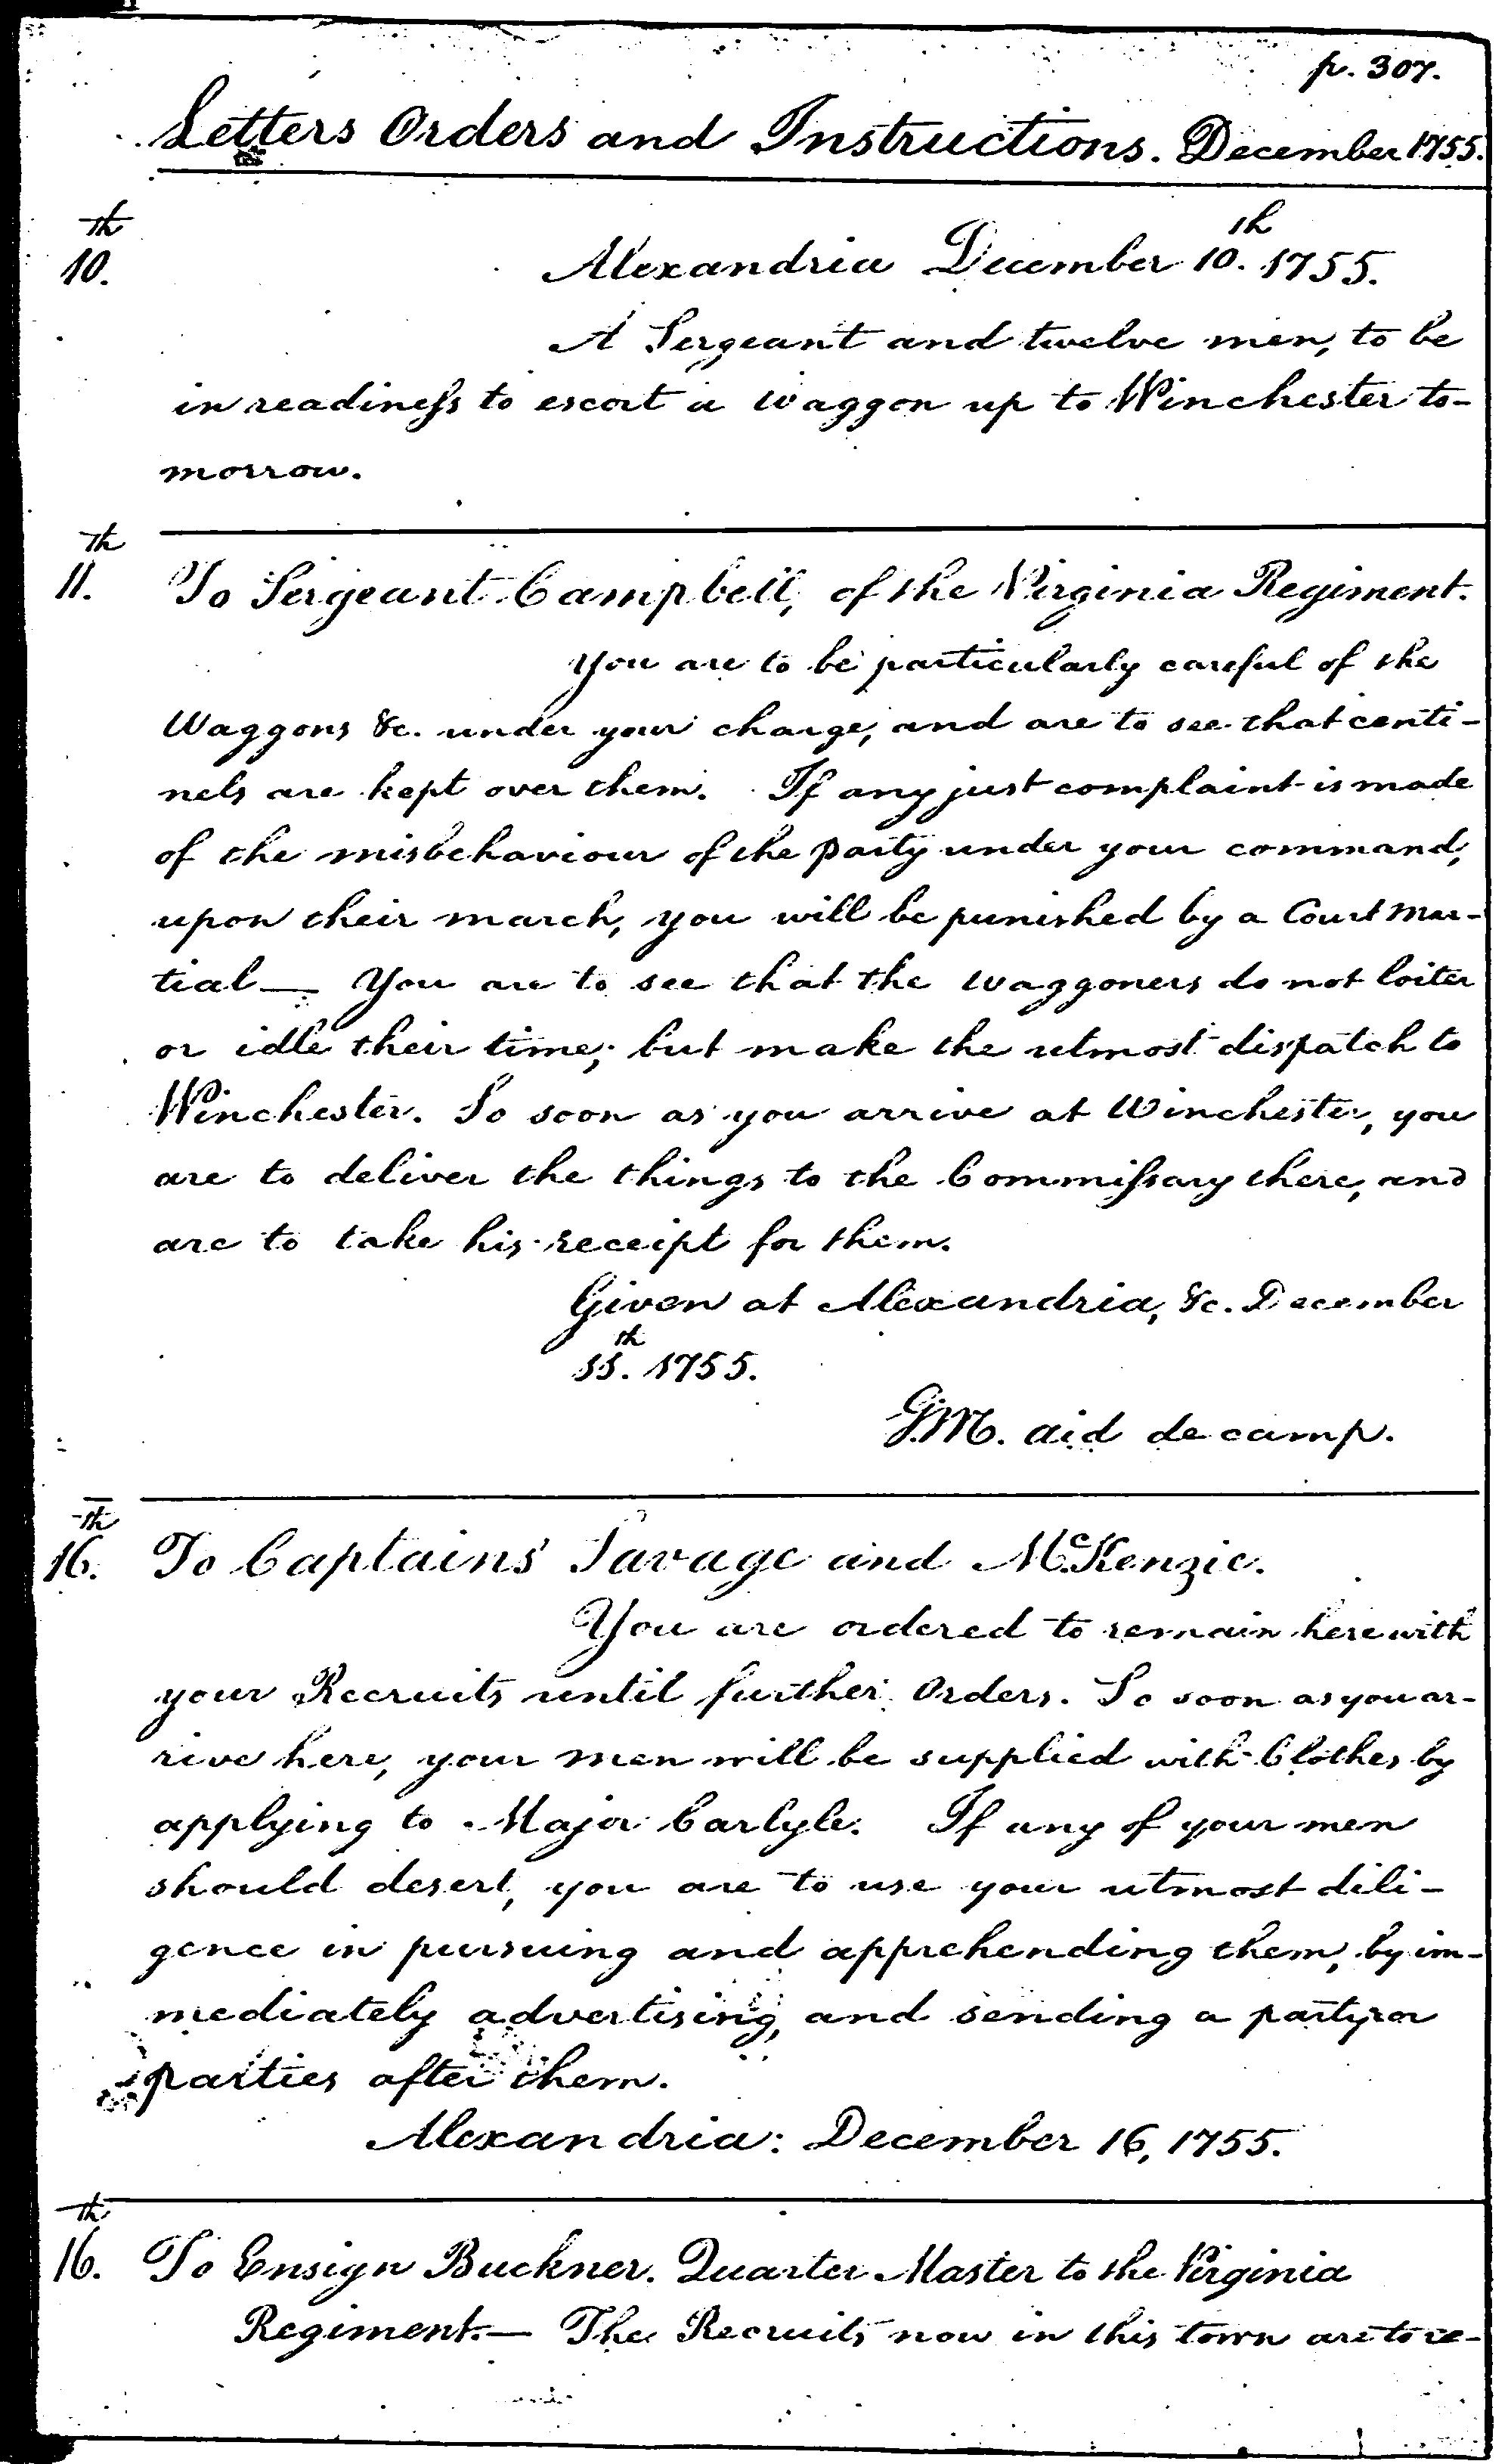 p. 307.
Letters Orders and Instructions. December 1755.
th
10.
Alexandria December 10.th 1755.
A Sergeant and twelve men, to be
in readiness to escort a waggon up to Winchester to-
morrow.
th
11. To Sergeant Campbell, of the Virginia Regiment.
You are to be particularly careful of the
Waggons &c. under your charge, and are to see that centi-
nels are kept over them. If any just complaint is made
of the misbehaviour of the party under your command,
upon their march, you will be punished by a Court Mar-
tial — You are to see that the waggoners do not loiter
or idle their time; but make the utmost dispatch to
Winchester. So soon as you arrive at Winchester, you
are to deliver the things to the Commissary there, and
are to take his receipt for them.
Given at Alexandria, &c. December
11.th 1755.
G.M. aid de camp.
th
16. To Captains Savage and McKenzie.
You are ordered to remain here with
your Recruits until further Orders. So soon as you ar-
rive here, your men will be supplied with Clothes by
applying to Major Carlyle. If any of your men
should desert, you are to use your utmost dili-
gence in pursuing and apprehending them, by im-
mediately advertising, and sending a party or
parties after them.
Alexandria: December 16, 1755.
th
16. To Ensign Buckner. Quarter Master to the Virginia
Regiment. — The Recruits now in this town are to re-